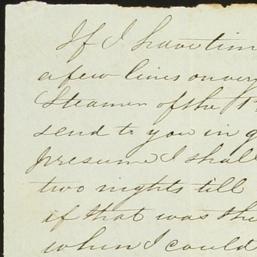 If I have tim
a few lines on very
Steamer of the 1
send to you in q
presume I shall
two nights till
if that was the
when I could